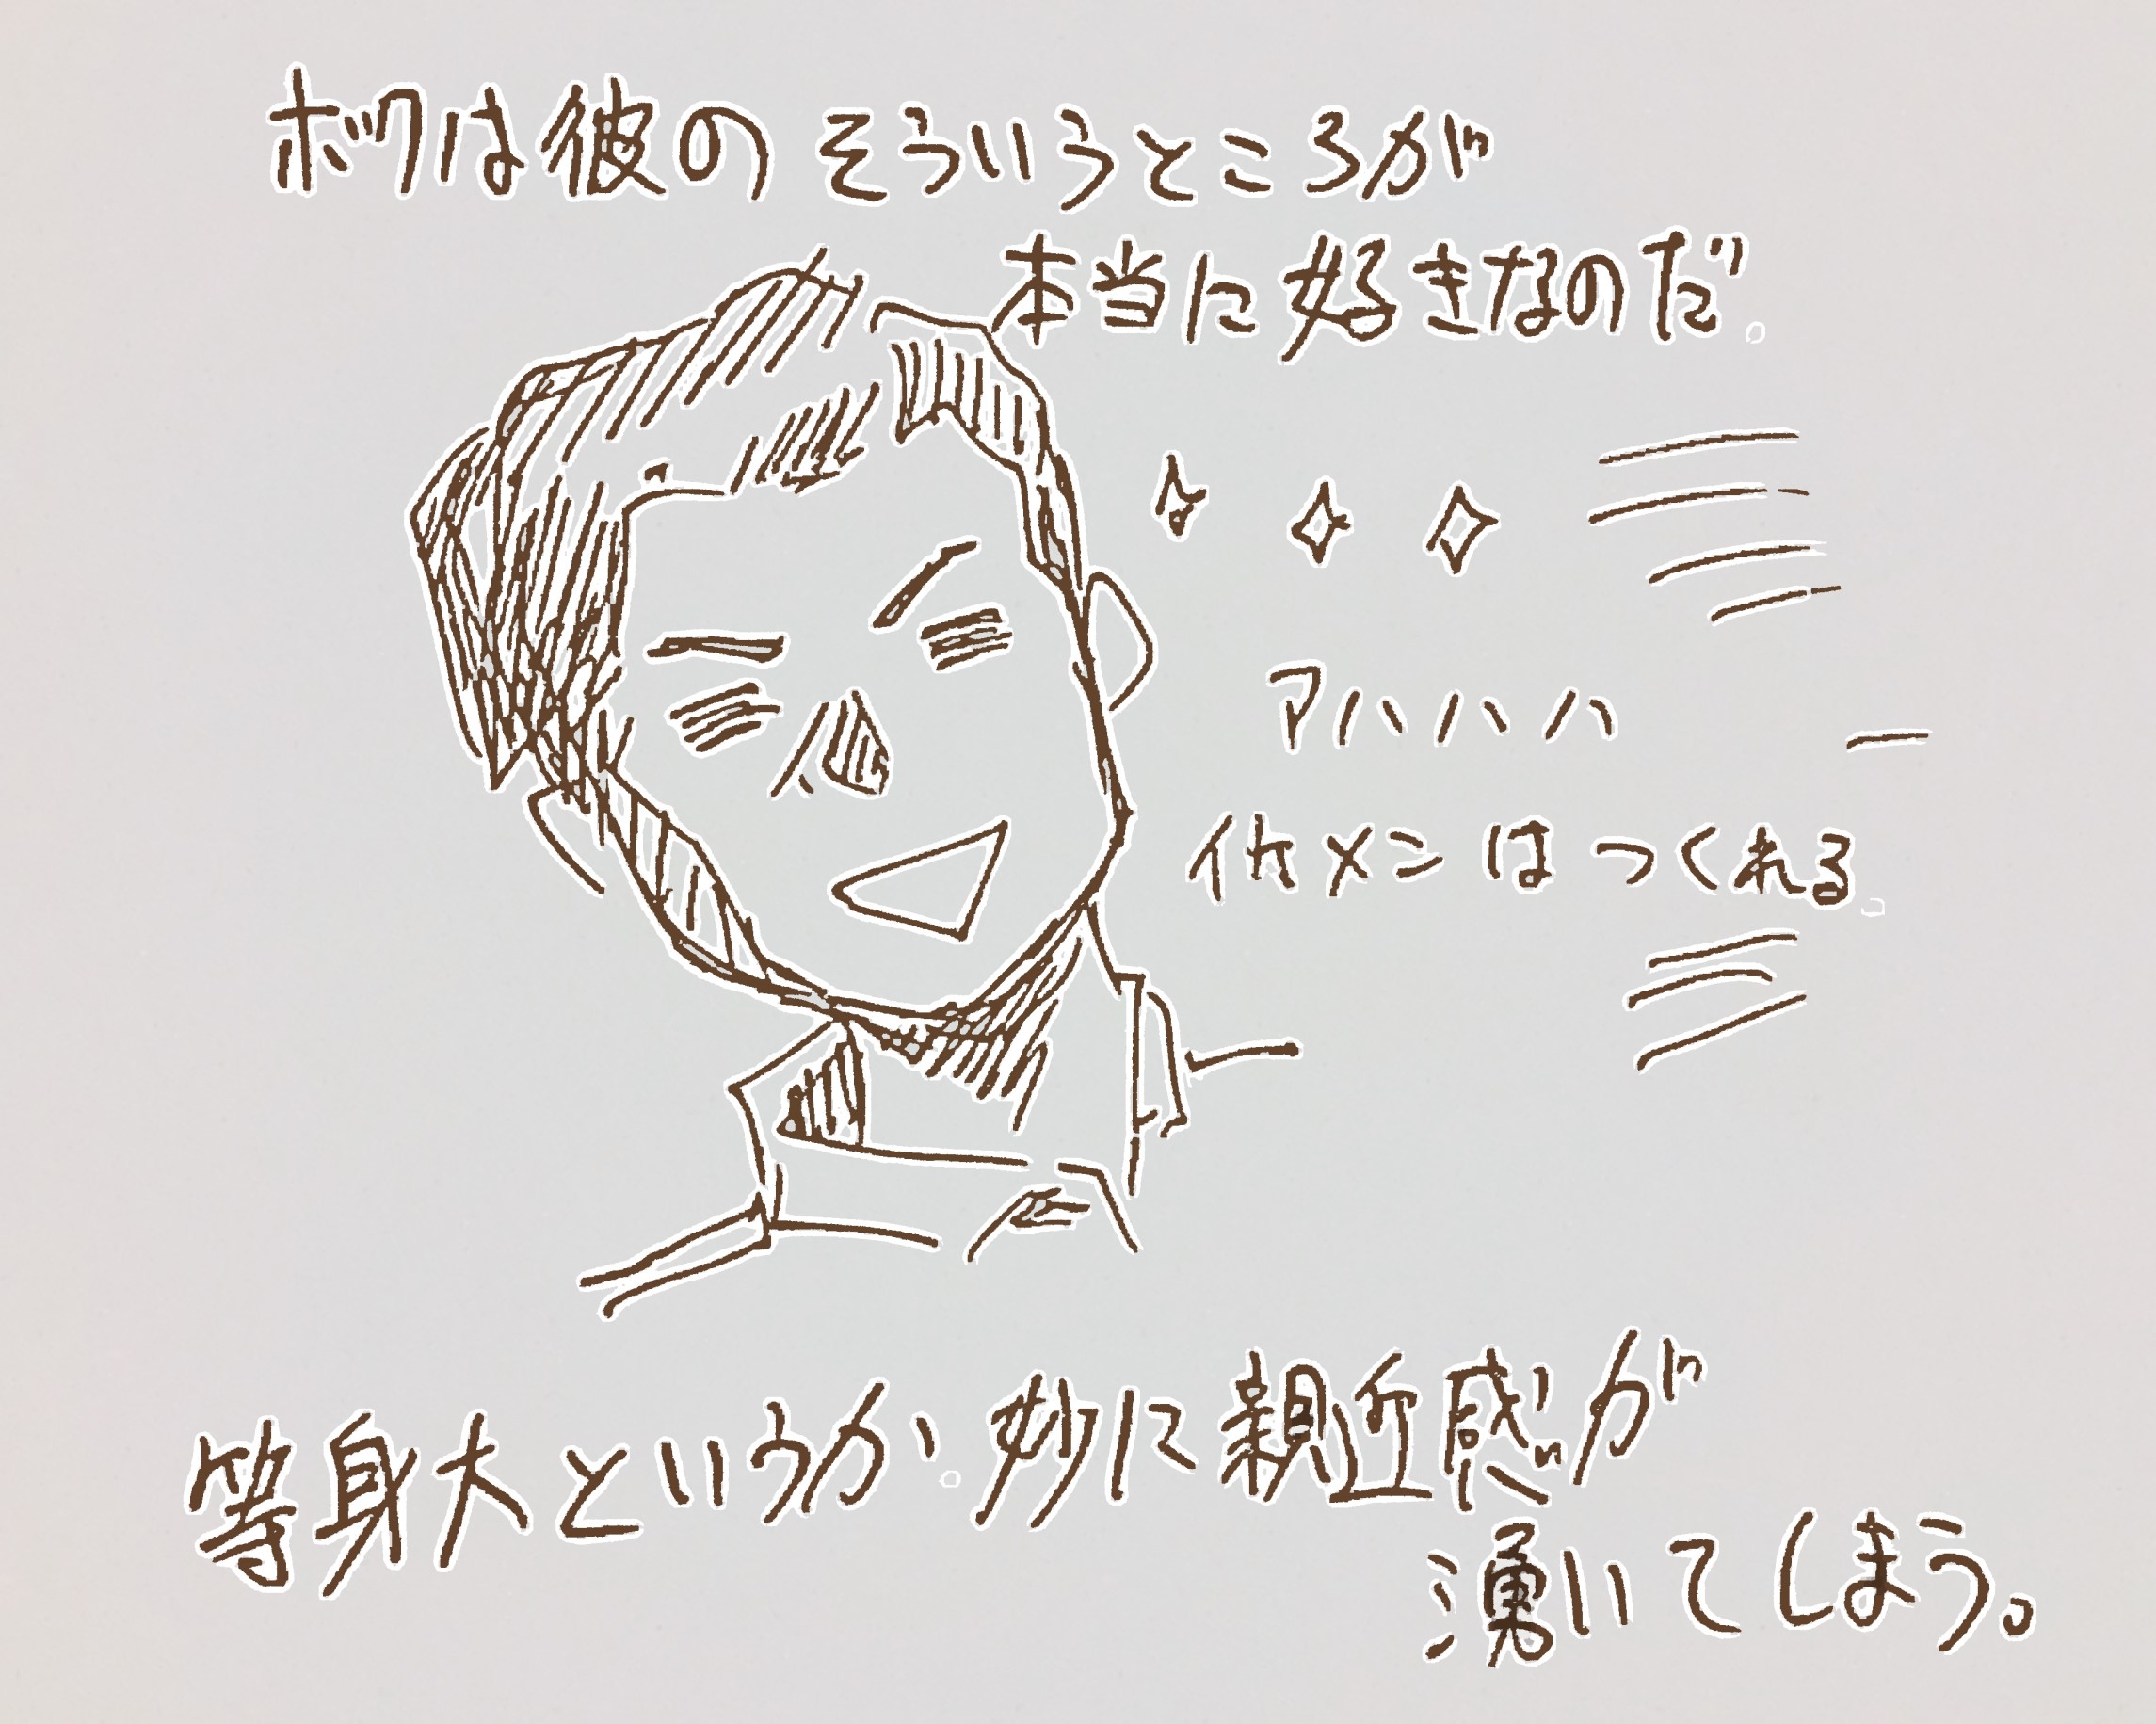 ボクは彼のそういうところが
本当に好きなのだ。
アハハハ
イケメンはつくれる。
等身大というか。妙に親近感が
湧いてしまう。